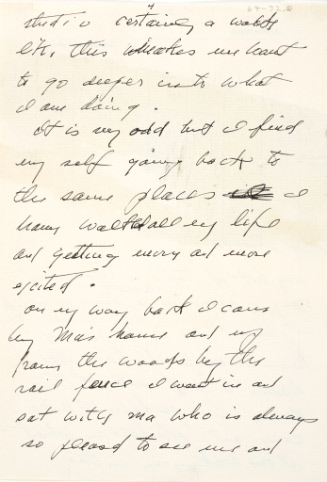 4
64-32.2
studio certainly a walk
like this makes me want
to go deeper into what
I am doing.
It is very odd but I find
my self going back to
the same places I
have walked all my life
and getting more and more
excited.
on my way back I came
by Ma's house and up
from the woods by the
rail fence I went in and
sat with ma who is always
so pleased to see me and